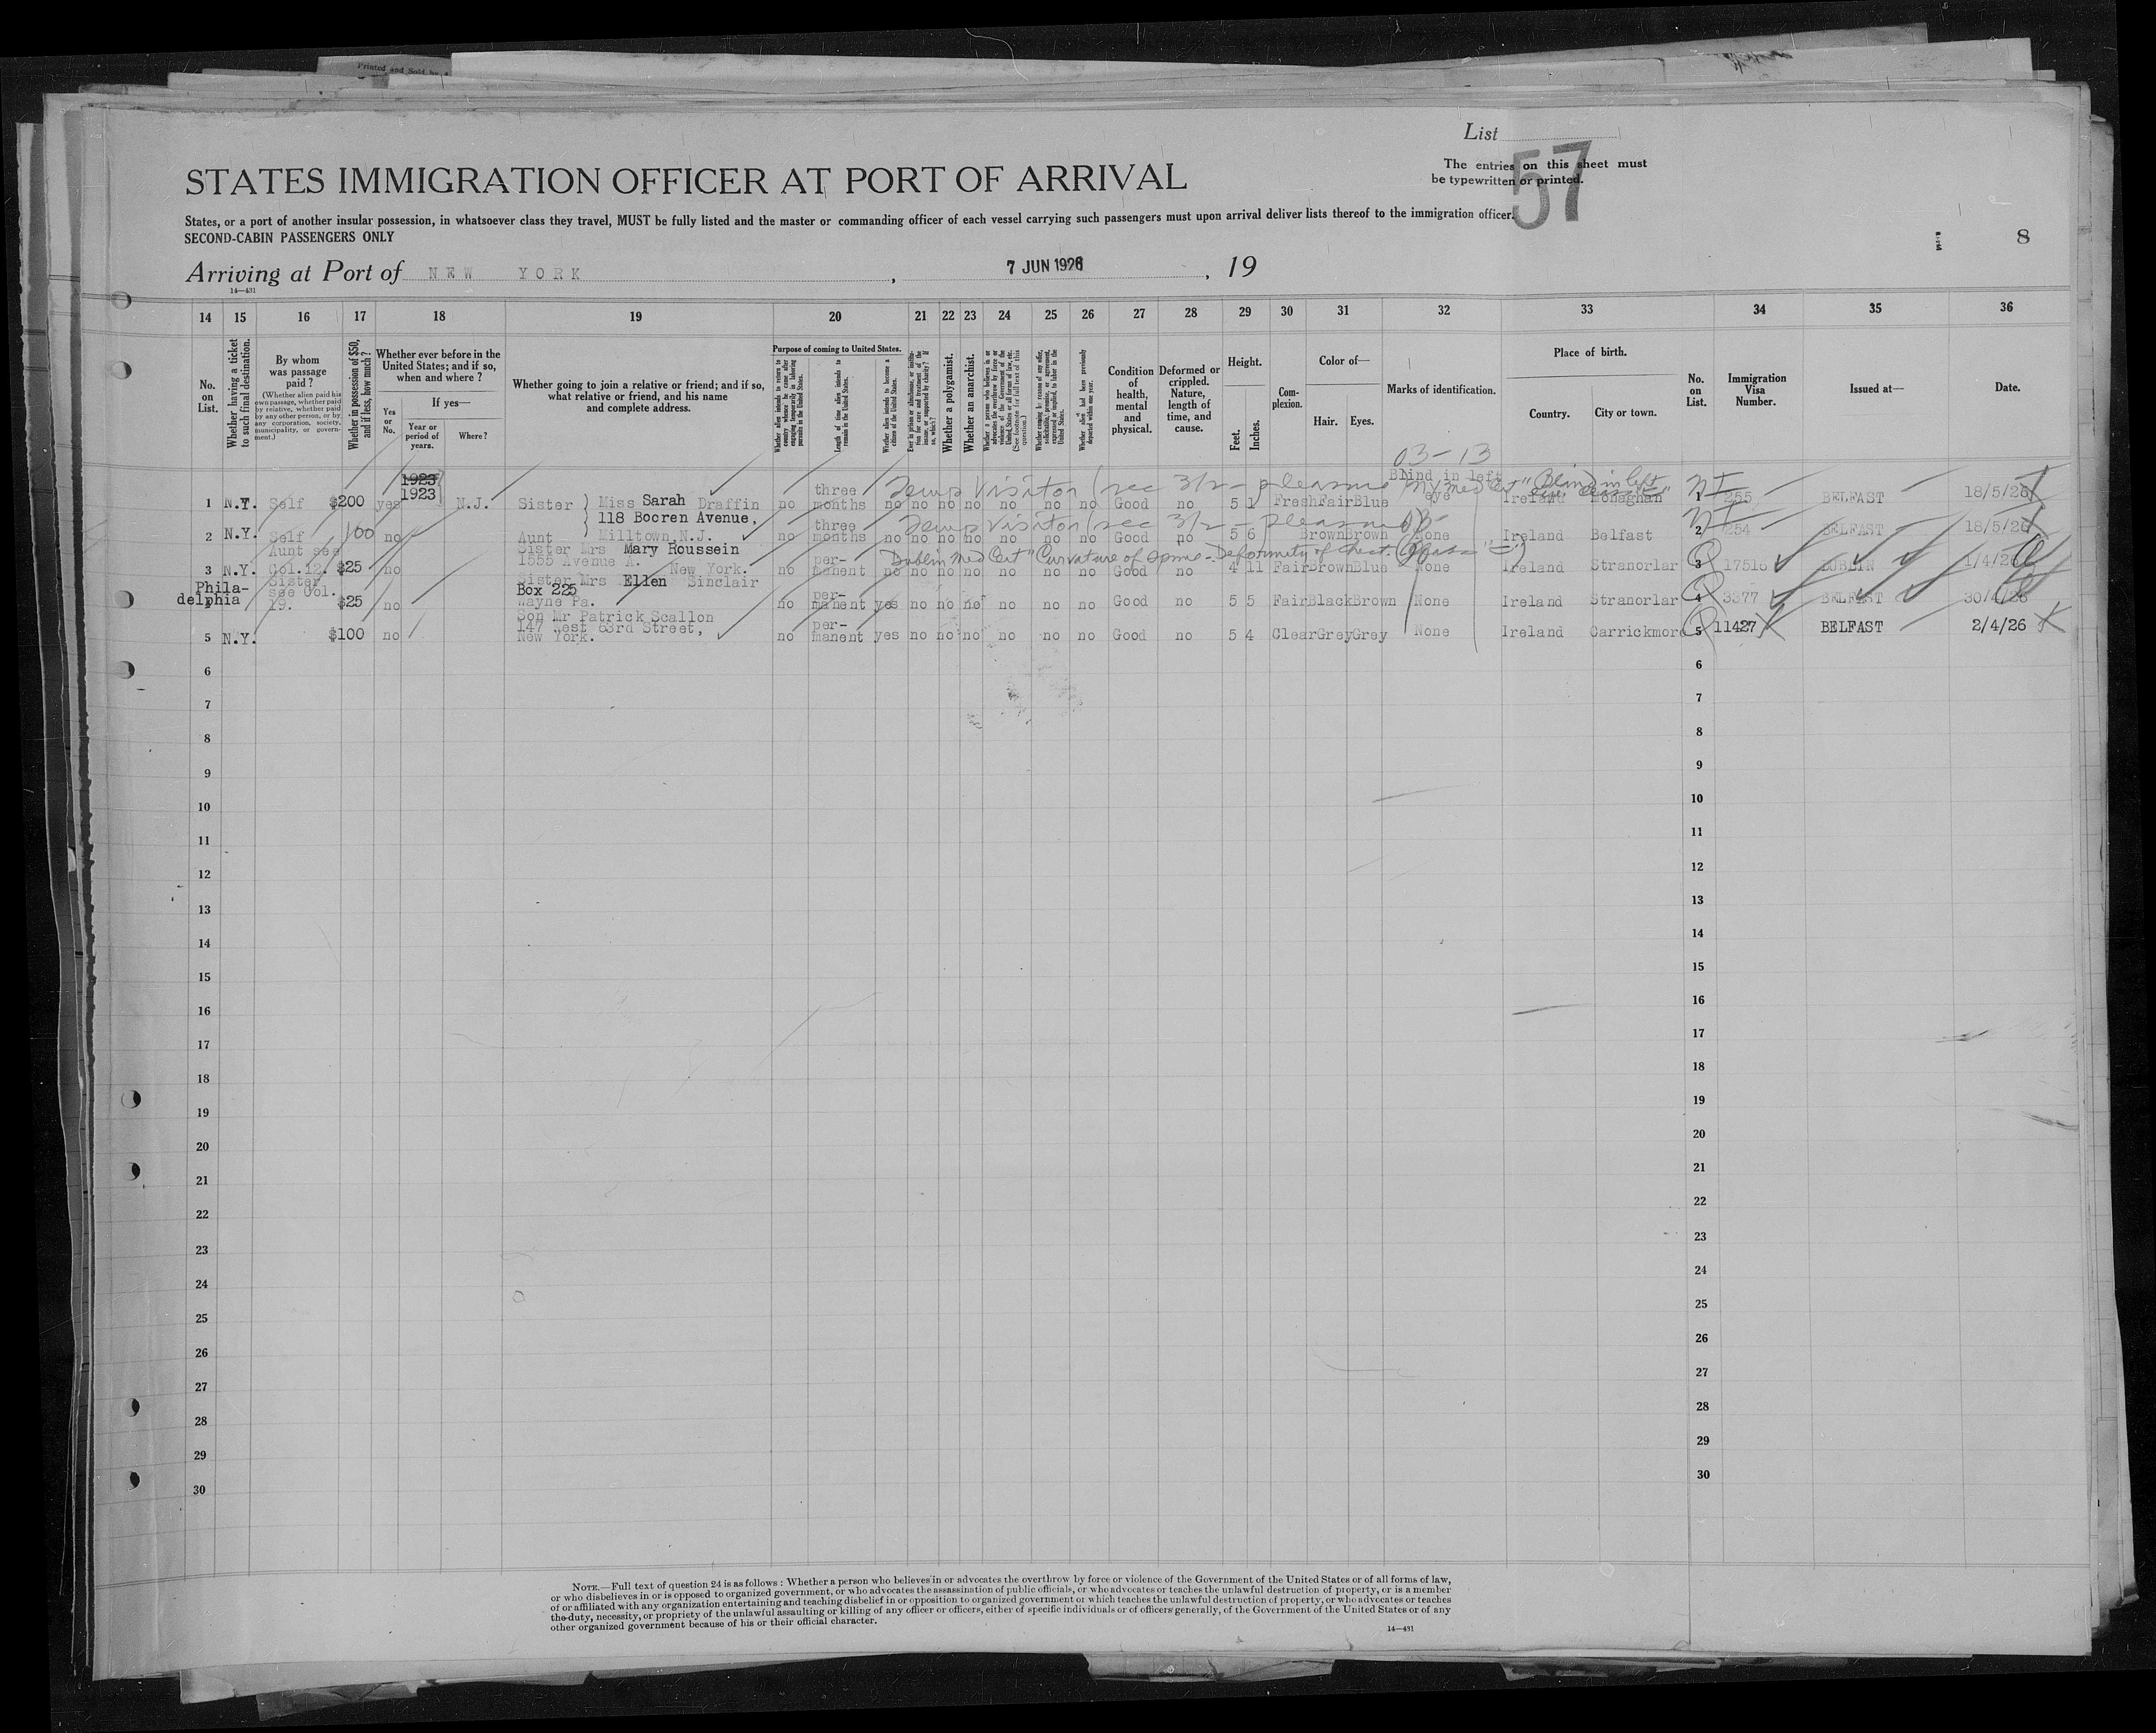 Printed and Sold by
List
57
The entries on this sheet must
be typewritten or printed.
STATES IMMIGRATION OFFICER AT PORT OF ARRIVAL
States, or a port of another insular possession, in whatsoever class they travel, MUST be fully listed and the master or commanding officer of each vessel carrying such passengers must upon arrival deliver lists thereof to the immigration officer.
SECOND-CABIN PASSENGERS ONLY
8
Arriving at Port of NEW YORK, 7 JUN 1926, 19
14—431
14 15 16 17 18 19 20 21 22 23 24 25 26 27 28 29 30 31 32 33 34 35 36
No. on List.
Whether having a ticket to such final destination.
By whom was passage paid?
(Whether alien paid his own passage, whether paid by relative, whether paid by any other person, or by any corporation, society, municipality, or government.)
Whether in possession of $50, and if less, how much?
Whether ever before in the United States; and if so, when and where?
Yes or No.
If yes—
Year or period of years.
Where?
Whether going to join a relative or friend; and if so, what relative or friend, and his name and complete address.
Purpose of coming to United States.
Whether alien intends to return to country whence he came after engaging temporarily in laboring pursuits in the United States.
Length of time alien intends to remain in the United States.
Whether alien intends to become a citizen of the United States.
Ever in prison or almshouse, or institution for care and treatment of the insane, or supported by charity? If so, which?
Whether a polygamist.
Whether an anarchist.
Whether a person who believes in or advocates the overthrow by force or violence of the Government of the United States or all forms of law, etc. (See footnote for full text of this question.)
Whether coming by reason of any offer, solicitation, promise, or agreement, expressed or implied, to labor in the United States.
Whether alien had been previously deported within one year.
Condition of health, mental and physical.
Deformed or crippled. Nature, length of time, and cause.
Height.
Feet. Inches.
Complexion.
Color of—
Hair. Eyes.
Marks of identification.
Place of birth.
Country. City or town.
No. on List.
Immigration Visa Number.
Issued at—
Date.
03-13
1923
Temp Visitor (sec 3/2 - pleasure) NY Med Cert "Blind in left
1 N.Y. Self $200 yes 1923 N.J. Sister Miss Sarah Draffin no three months no no no no no no Good no 5 1 Fresh Fair Blue Blind in left eye Ireland Monaghan 1 NI 255 BELFAST 18/5/26
118 Booren Avenue,
Temp Visitor (sec 3/2 - pleasure)
2 N.Y. Self 100 no Aunt Milltown N.J. no three months no no no no no no Good no 5 6 Brown Brown None Ireland Belfast 2 NI 254 BELFAST 18/5/26
Dublin Med Cert "Curvature of spine - Deformity of chest.
3 N.Y. Aunt see Col.12. $25 no Sister Mrs Mary Roussein 1555 Avenue A. New York. no permanent no no no no no no Good no 4 11 Fair Brown Blue None Ireland Stranorlar 3 17516 DUBLIN 1/4/26
4 Philadelphia Sister see Col. 19. $25 no Sister Mrs Ellen Sinclair Box 225 Wayne Pa. no permanent yes no no no no no no Good no 5 5 Fair Black Brown None Ireland Stranorlar 4 3377 BELFAST 30/4/26
5 N.Y. $100 no Son Mr Patrick Scallon 147 West 63rd Street, New York. no permanent yes no no no no no no Good no 5 4 Clear Grey Grey None Ireland Carrickmore 5 11427 BELFAST 2/4/26
6 6
7 7
8 8
9 9
10 10
11 11
12 12
13 13
14 14
15 15
16 16
17 17
18 18
19 19
20 20
21 21
22 22
23 23
24 24
25 25
26 26
27 27
28 28
29 29
30 30
NOTE.—Full text of question 24 is as follows: Whether a person who believes in or advocates the overthrow by force or violence of the Government of the United States or of all forms of law,
or who disbelieves in or is opposed to organized government, or who advocates the assassination of public officials, or who advocates or teaches the unlawful destruction of property, or is a member
of or affiliated with any organization entertaining and teaching disbelief in or opposition to organized government or which teaches the unlawful destruction of property, or who advocates or teaches
the duty, necessity, or propriety of the unlawful assaulting or killing of any officer or officers, either of specific individuals or of officers generally, of the Government of the United States or of any
other organized government because of his or their official character.
14—431